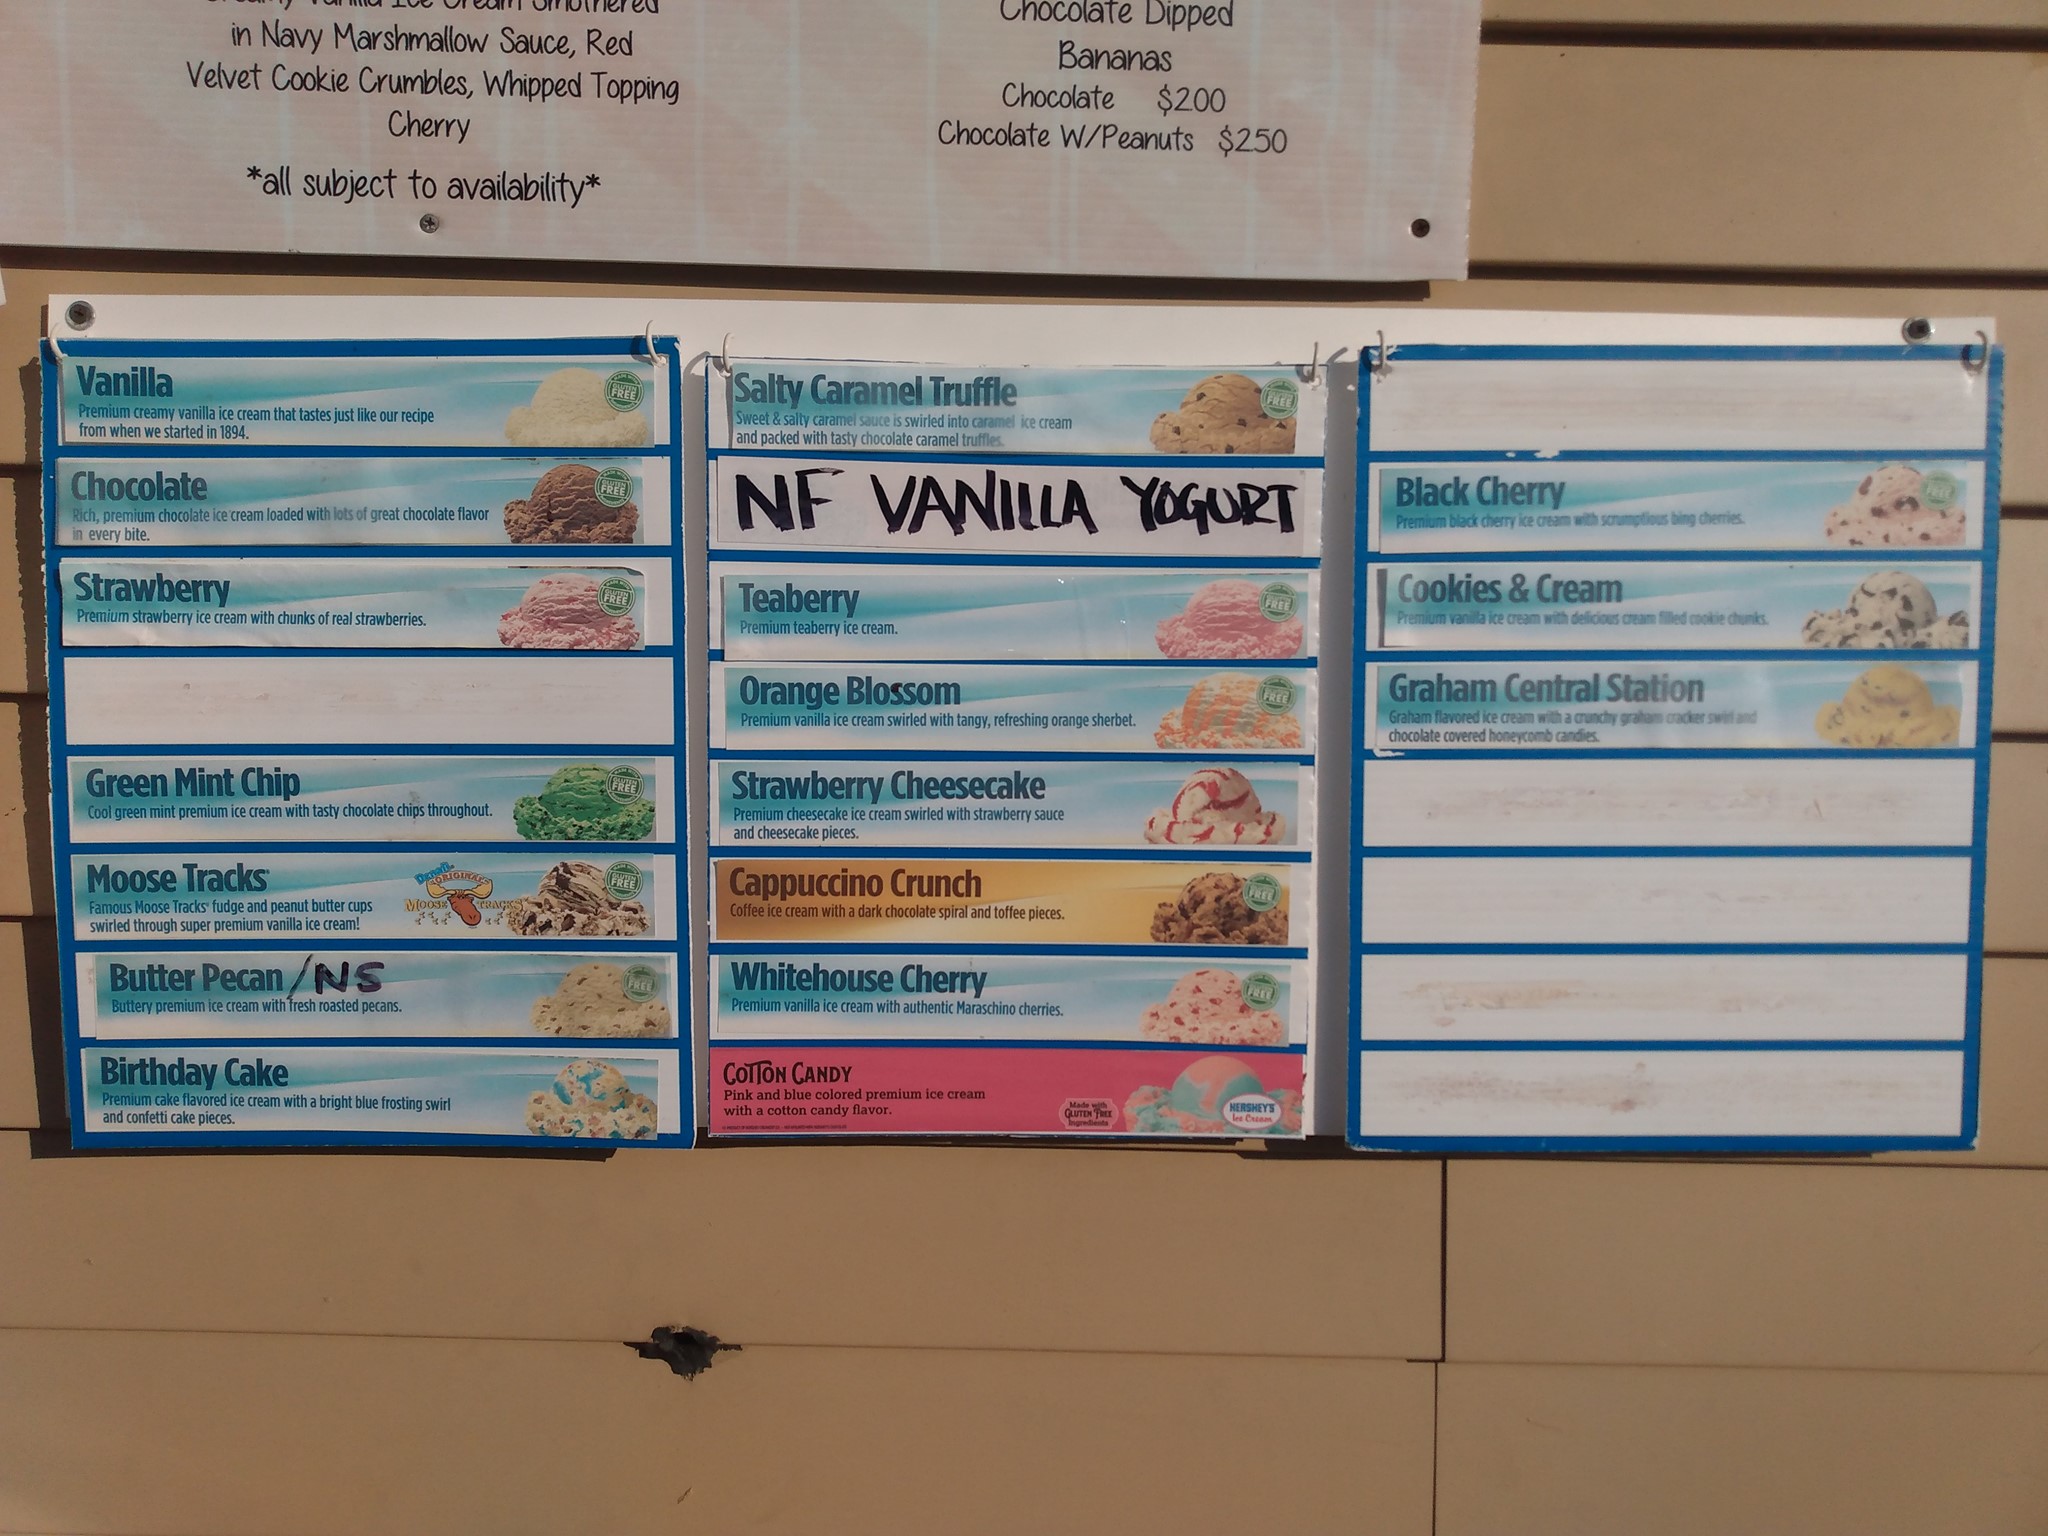 Creamy Vanilla Ice Cream Smothered
in Navy Marshmallow Sauce, Red
Velvet Cookie Crumbles, Whipped Topping
Cherry
*all subject to availability*
Chocolate Dipped
Bananas
Chocolate $200
Chocolate W/Peanuts $250
Vanilla
Premium creamy vanilla ice cream that tastes just like our recipe
from when we started in 1894.
GLUTEN
FREE
Chocolate
Rich, premium chocolate ice cream loaded with lots of great chocolate flavor
in every bite.
GLUTEN
FREE
Strawberry
Premium strawberry ice cream with chunks of real strawberries.
GLUTEN
FREE
Green Mint Chip
Cool green mint premium ice cream with tasty chocolate chips throughout.
GLUTEN
FREE
Moose Tracks®
Famous Moose Tracks® fudge and peanut butter cups
swirled through super premium vanilla ice cream!
ORIGINAL
MOOSE TRACKS
GLUTEN
FREE
Butter Pecan /NS
Buttery premium ice cream with fresh roasted pecans.
FREE
Birthday Cake
Premium cake flavored ice cream with a bright blue frosting swirl
and confetti cake pieces.
Salty Caramel Truffle
Sweet & salty caramel sauce is swirled into caramel ice cream
and packed with tasty chocolate caramel truffles.
GLUTEN
FREE
NF VANILLA YOGURT
Teaberry
Premium teaberry ice cream.
GLUTEN
FREE
Orange Blossom
Premium vanilla ice cream swirled with tangy, refreshing orange sherbet.
GLUTEN
FREE
Strawberry Cheesecake
Premium cheesecake ice cream swirled with strawberry sauce
and cheesecake pieces.
Cappuccino Crunch
Coffee ice cream with a dark chocolate spiral and toffee pieces.
GLUTEN
FREE
Whitehouse Cherry
Premium vanilla ice cream with authentic Maraschino cherries.
GLUTEN
FREE
COTTON CANDY
Pink and blue colored premium ice cream
with a cotton candy flavor.
Made with
GLUTEN FREE
Ingredients
HERSHEY'S
Ice Cream
Black Cherry
Premium black cherry ice cream with scrumptious bing cherries.
FREE
Cookies & Cream
Premium vanilla ice cream with delicious cream filled cookie chunks.
Graham Central Station
Graham flavored ice cream with a crunchy graham cracker swirl and
chocolate covered honeycomb candies.